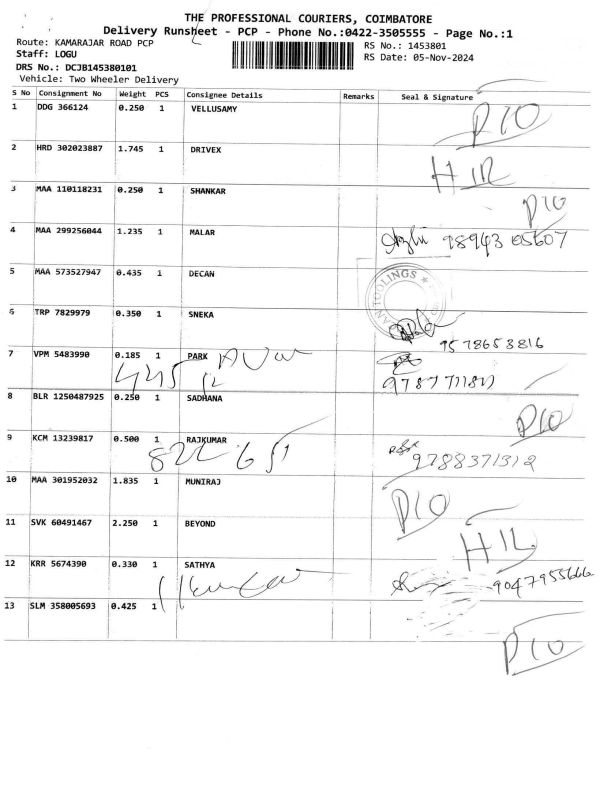 THE PROFESSIONAL COURIERS, COIMBATORE
Delivery Runsheet - PCP - Phone No.:0422-3505555 - Page No.:1
Route: KAMARAJAR ROAD PCP RS No.: 1453801
Staff: LOGU RS Date: 05-Nov-2024
DRS No.: DCJB145380101
Vehicle: Two Wheeler Delivery
S No Consignment No Weight PCS Consignee Details Remarks Seal & Signature
1 DDG 366124 0.250 1 VELLUSAMY D10
2 HRD 302023887 1.745 1 DRIVEX
3 MAA 110118231 0.250 1 SHANKAR D10
4 MAA 299256044 1.235 1 MALAR 98943 05607
5 MAA 573527947 0.435 1 DECAN
TOOLINGS
6 TRP 7829979 0.350 1 SNEKA 9578653816
7 VPM 5483990 0.185 1 PARK
8 BLR 1250487925 0.250 1 SADHANA D10
9 KCM 13239817 0.500 1 RAJKUMAR 9788371312
10 MAA 301952032 1.835 1 MUNIRAJ D10
11 SVK 60491467 2.250 1 BEYOND
12 KRR 5674390 0.330 1 SATHYA 9047955666
13 SLM 358005693 0.425 1 D10